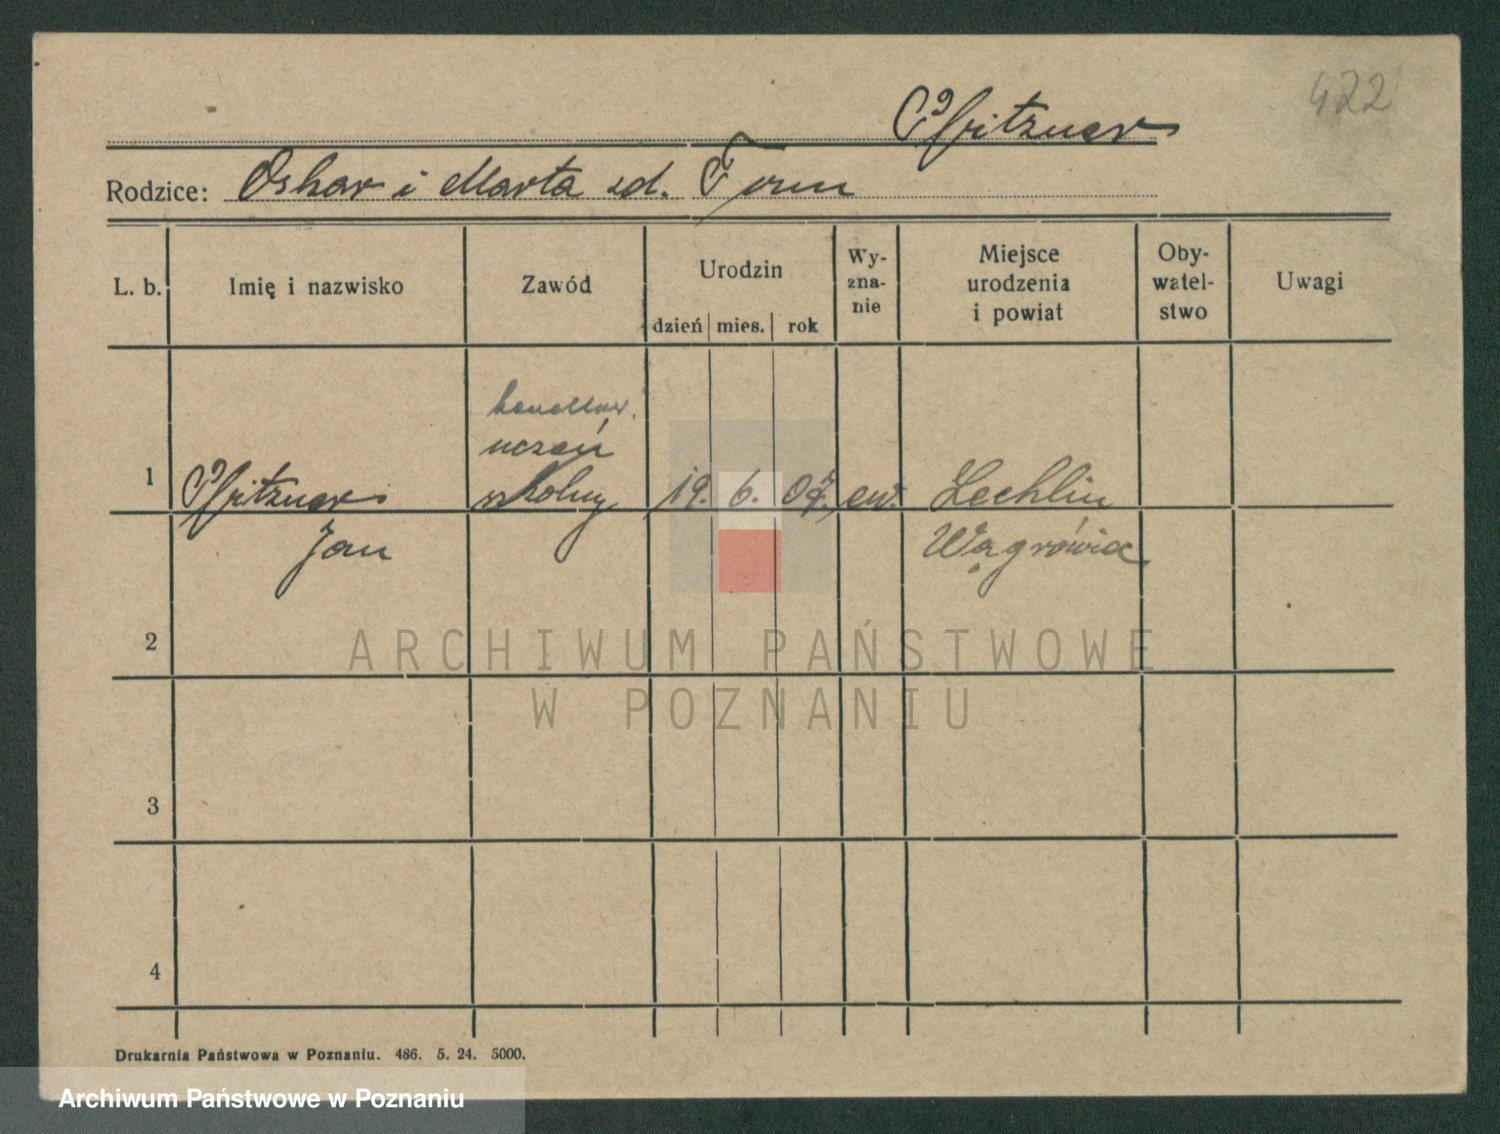 422
Pfitzner
Rodzice: Oskar i Marta zd.
L. b. Imię i nazwisko Zawód Urodzin dzień mies. rok Wy-zna-nie Miejsce urodzenia i powiat Oby-watel-stwo Uwagi
handlow.
uczeń
1 Pfitzner szkolny 19. 6. 07. ew. Lechlin
Jan Wągrówiec
2
ARCHIWUM PAŃSTWOWE
W POZNANIU
3
4
Drukarnia Państwowa w Poznaniu. 486. 5. 24. 5000.
Archiwum Państwowe w Poznaniu